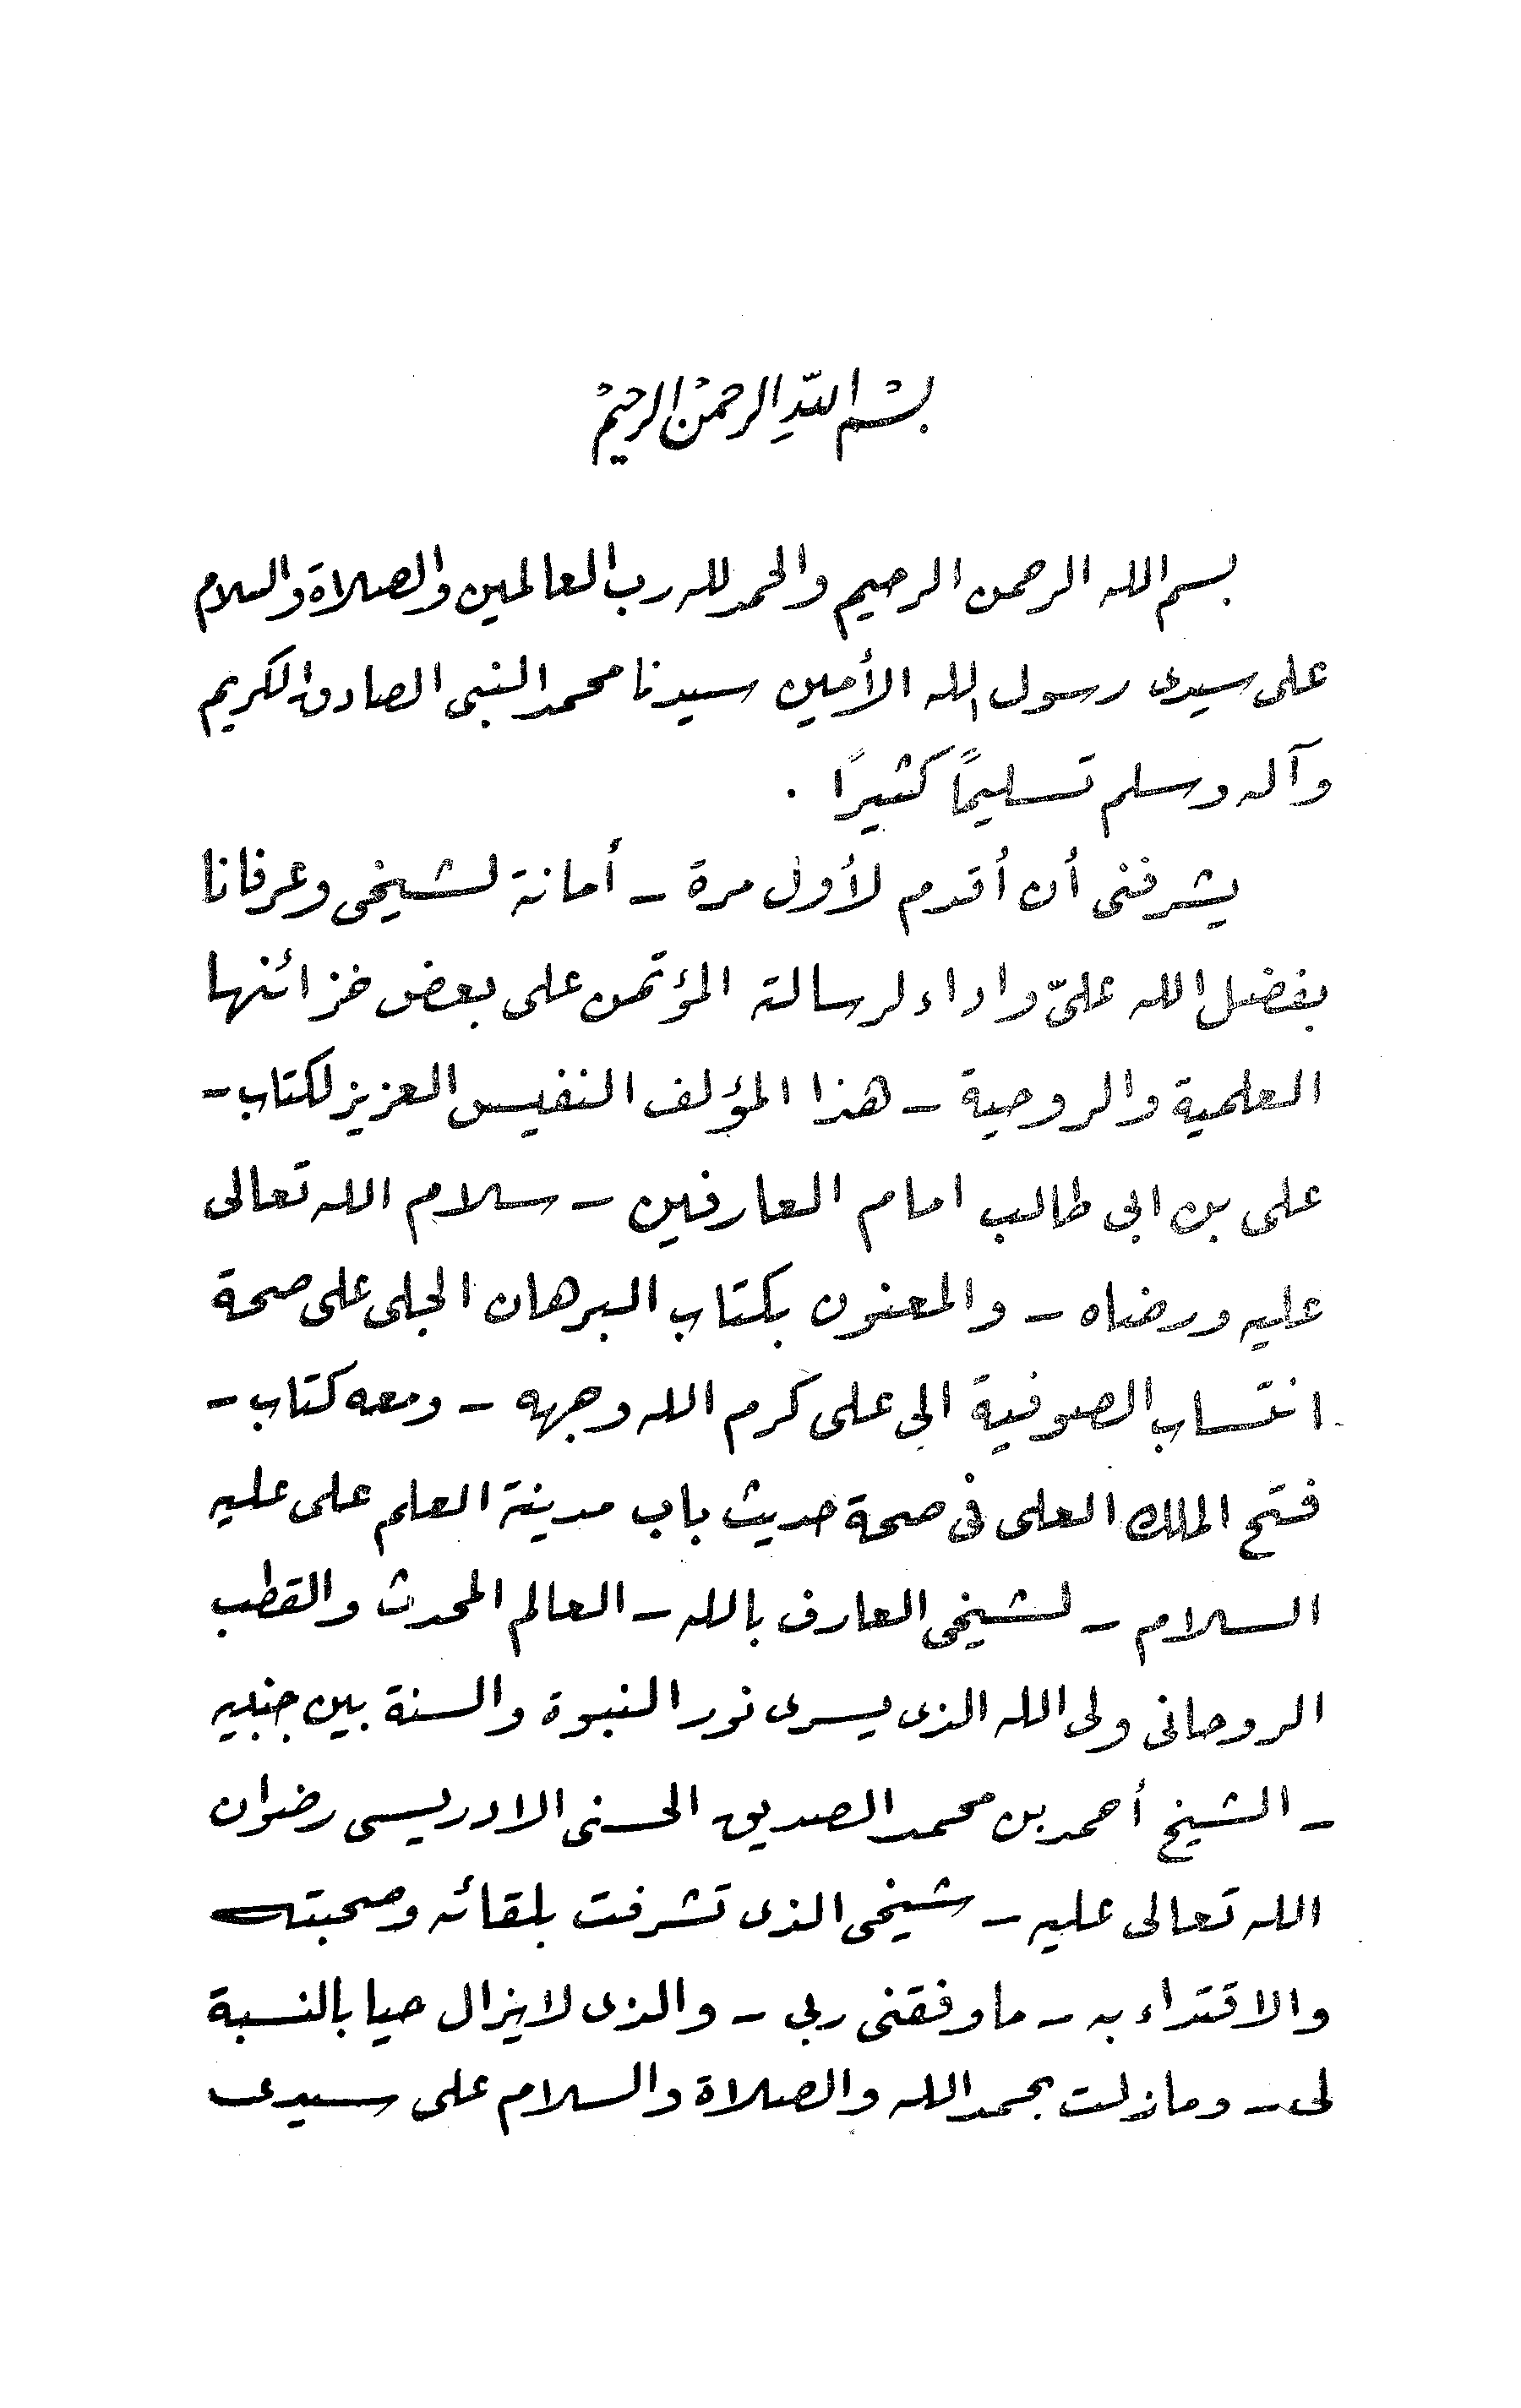 بسم الله الرحمن الرحيم
بسم الله الرحمن الرحيم والحمد لله رب العالمين والصلاة والسلام
على سيدى رسول الله الأمين سيدنا محمد النبى الصادق الكريم
وآله وسلم تسليمًا كثيرًا .
يشرفنى أن أقدم لأول مرة - أمانة لشيخى وعرفانا
بفضل الله علىّ واداء لرسالة المؤتمن على بعض خزائنها
العلمية والروحية - هذا المؤلف النفيس العزيز لكتاب -
على بن ابى طالب امام العارفين - سلام الله تعالى
عليه ورضاه - والمعنون بكتاب البرهان الجلى على صحة
انتساب الصوفية الى على كرم الله وجهه - ومعه كتاب -
فتح الملك العلى فى صحة حديث باب مدينة العلم على عليه
السلام - لشيخى العارف بالله - العالم المحدث والقطب
الروحانى ولى الله الذى يسرى نور النبوة والسنة بين جنبيه
- الشيخ أحمد بن محمد الصديق الحسنى الادريسى رضوان
الله تعالى عليه - شيخى الذى تشرفت بلقائه وصحبته
والاقتداء به - ما وفقنى ربى - والذى لايزال حيا بالنسبة
لى - ومازلت بحمد الله والصلاة والسلام على سيدى